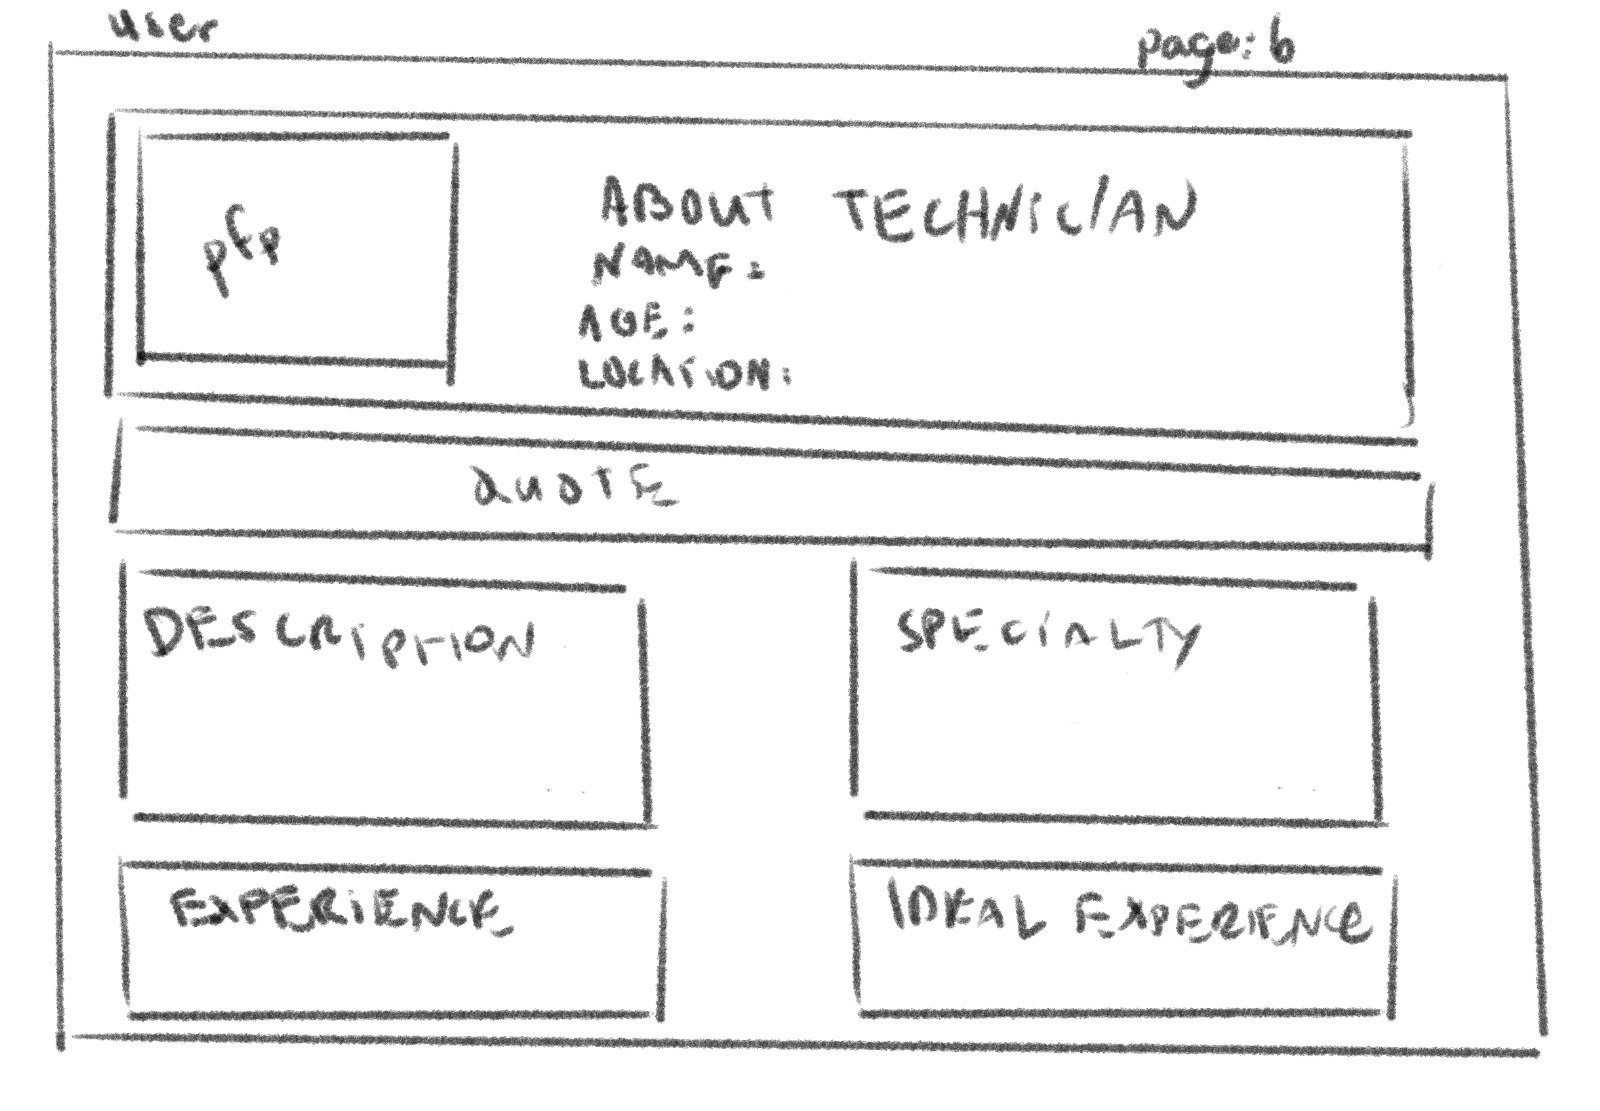 user
page: 6
pfp
ABOUT TECHNICIAN
NAME:
AGE:
LOCATION:
QUOTE
DESCRIPTION
SPECIALTY
EXPERIENCE
IDEAL EXPERIENCE